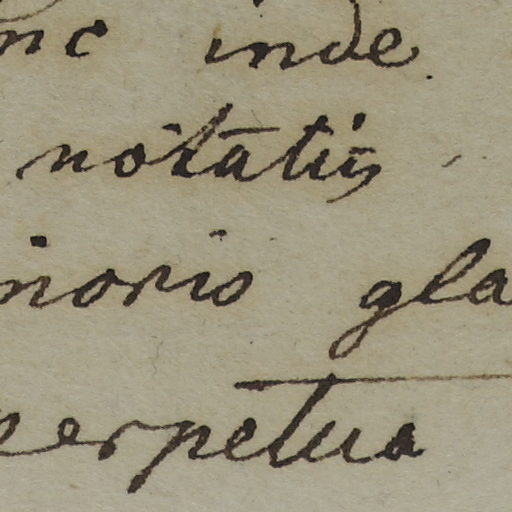 nc inde
notatis
inoris gla
perpetua